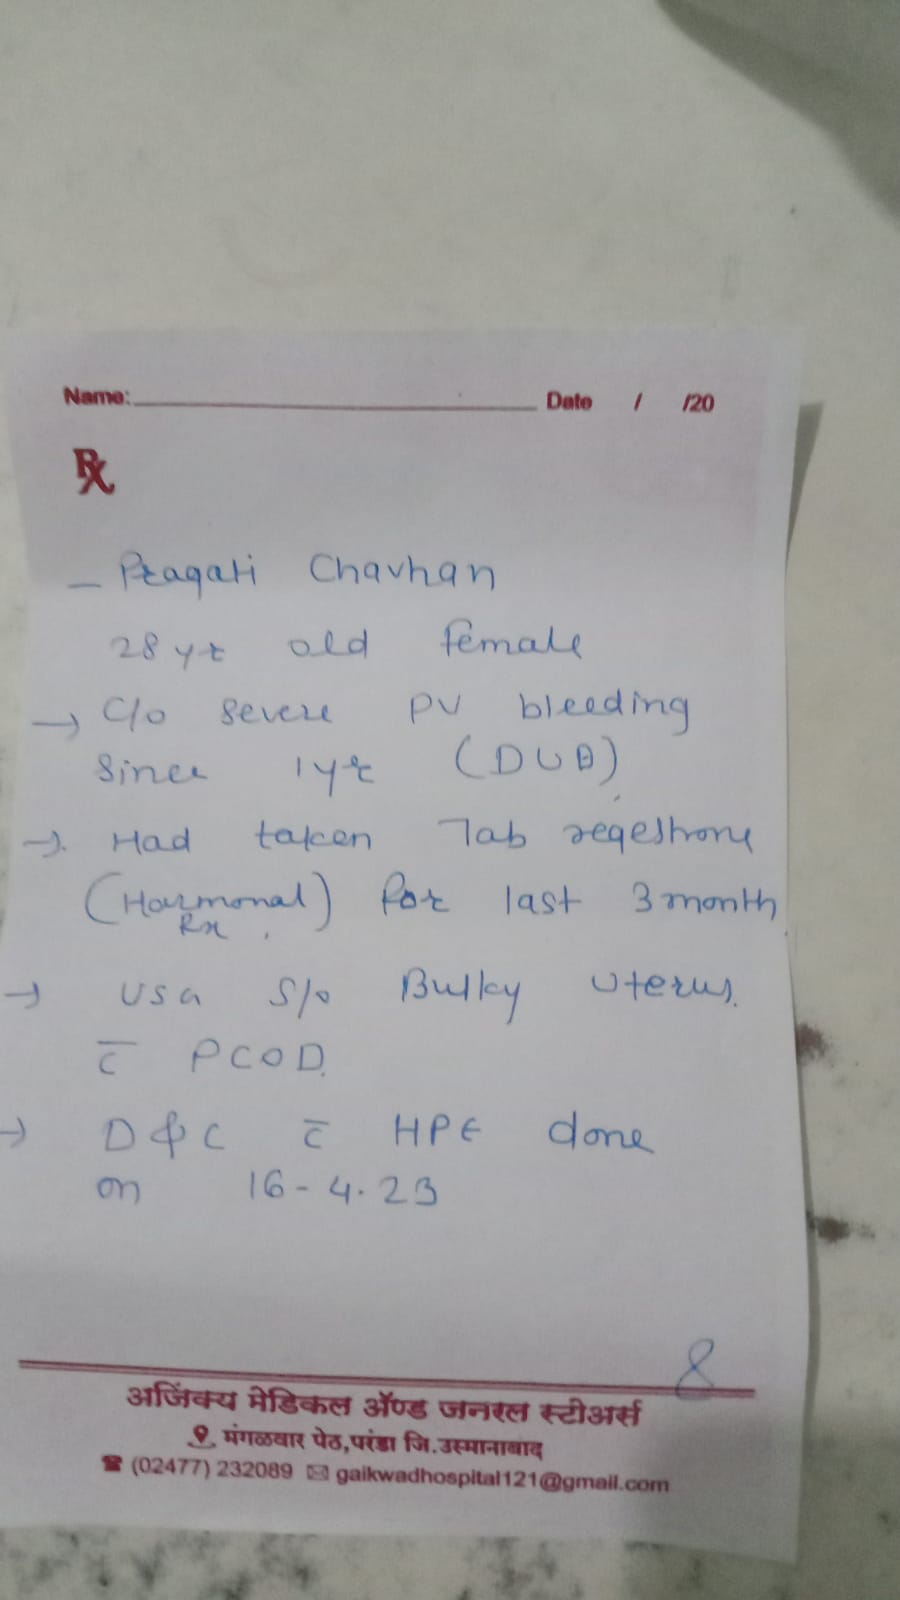 Name: Date / /20
Rx
– Pragati Chavhan
28 yr old female
→ C/o severe PV bleeding
since 1yr (DUB)
→ Had taken Tab regestrone
(Harmonal) for last 3 month
Rx
→ USG S/o Bulky uterus.
c̄ PCOD.
→ D&C c̄ HPE done
on 16-4.23
अजिंक्य मेडिकल ॲण्ड जनरल स्टोअर्स
मंगळवार पेठ,परंडा जि.उस्मानाबाद
(02477) 232089 gaikwadhospital121@gmail.com